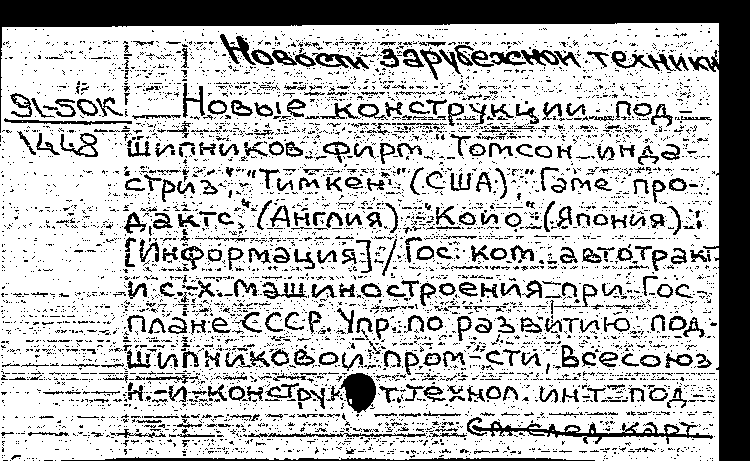 Новости зарубежной техники
91-50К Новые конструкции под-
1448 шипников фирм "Томсон инда-
стриз", "Тимкен" (США), "Гаме про-
дактс," (Англия), "Койо" (Япония) :
[Информация] / Гос. ком. автотракт.
и с.-х. машиностроения при Гос-
плане СССР. Упр. по развитию под-
шипниковой пром-сти, Всесоюз.
н.-и конструк т. технол. ин-т под-
См. след. карт.